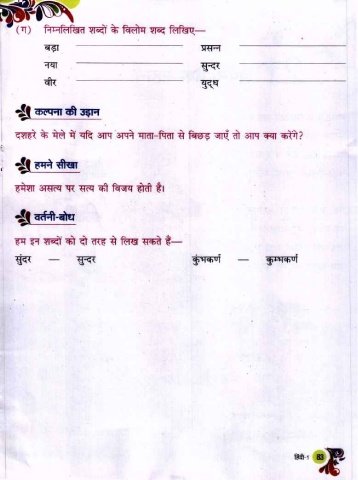 (ग) निम्नलिखित शब्दों के विलोम शब्द लिखिए—
बड़ा प्रसन्न
नया सुन्दर
वीर युद्ध
कल्पना की उड़ान
दशहरे के मेले में यदि आप अपने माता-पिता से बिछड़ जाएँ तो आप क्या करेंगे?
हमने सीखा
हमेशा असत्य पर सत्य की विजय होती है।
वर्तनी-बोध
हम इन शब्दों को दो तरह से लिख सकते हैं—
सुंदर — सुन्दर कुंभकर्ण — कुम्भकर्ण
हिंदी-1 83